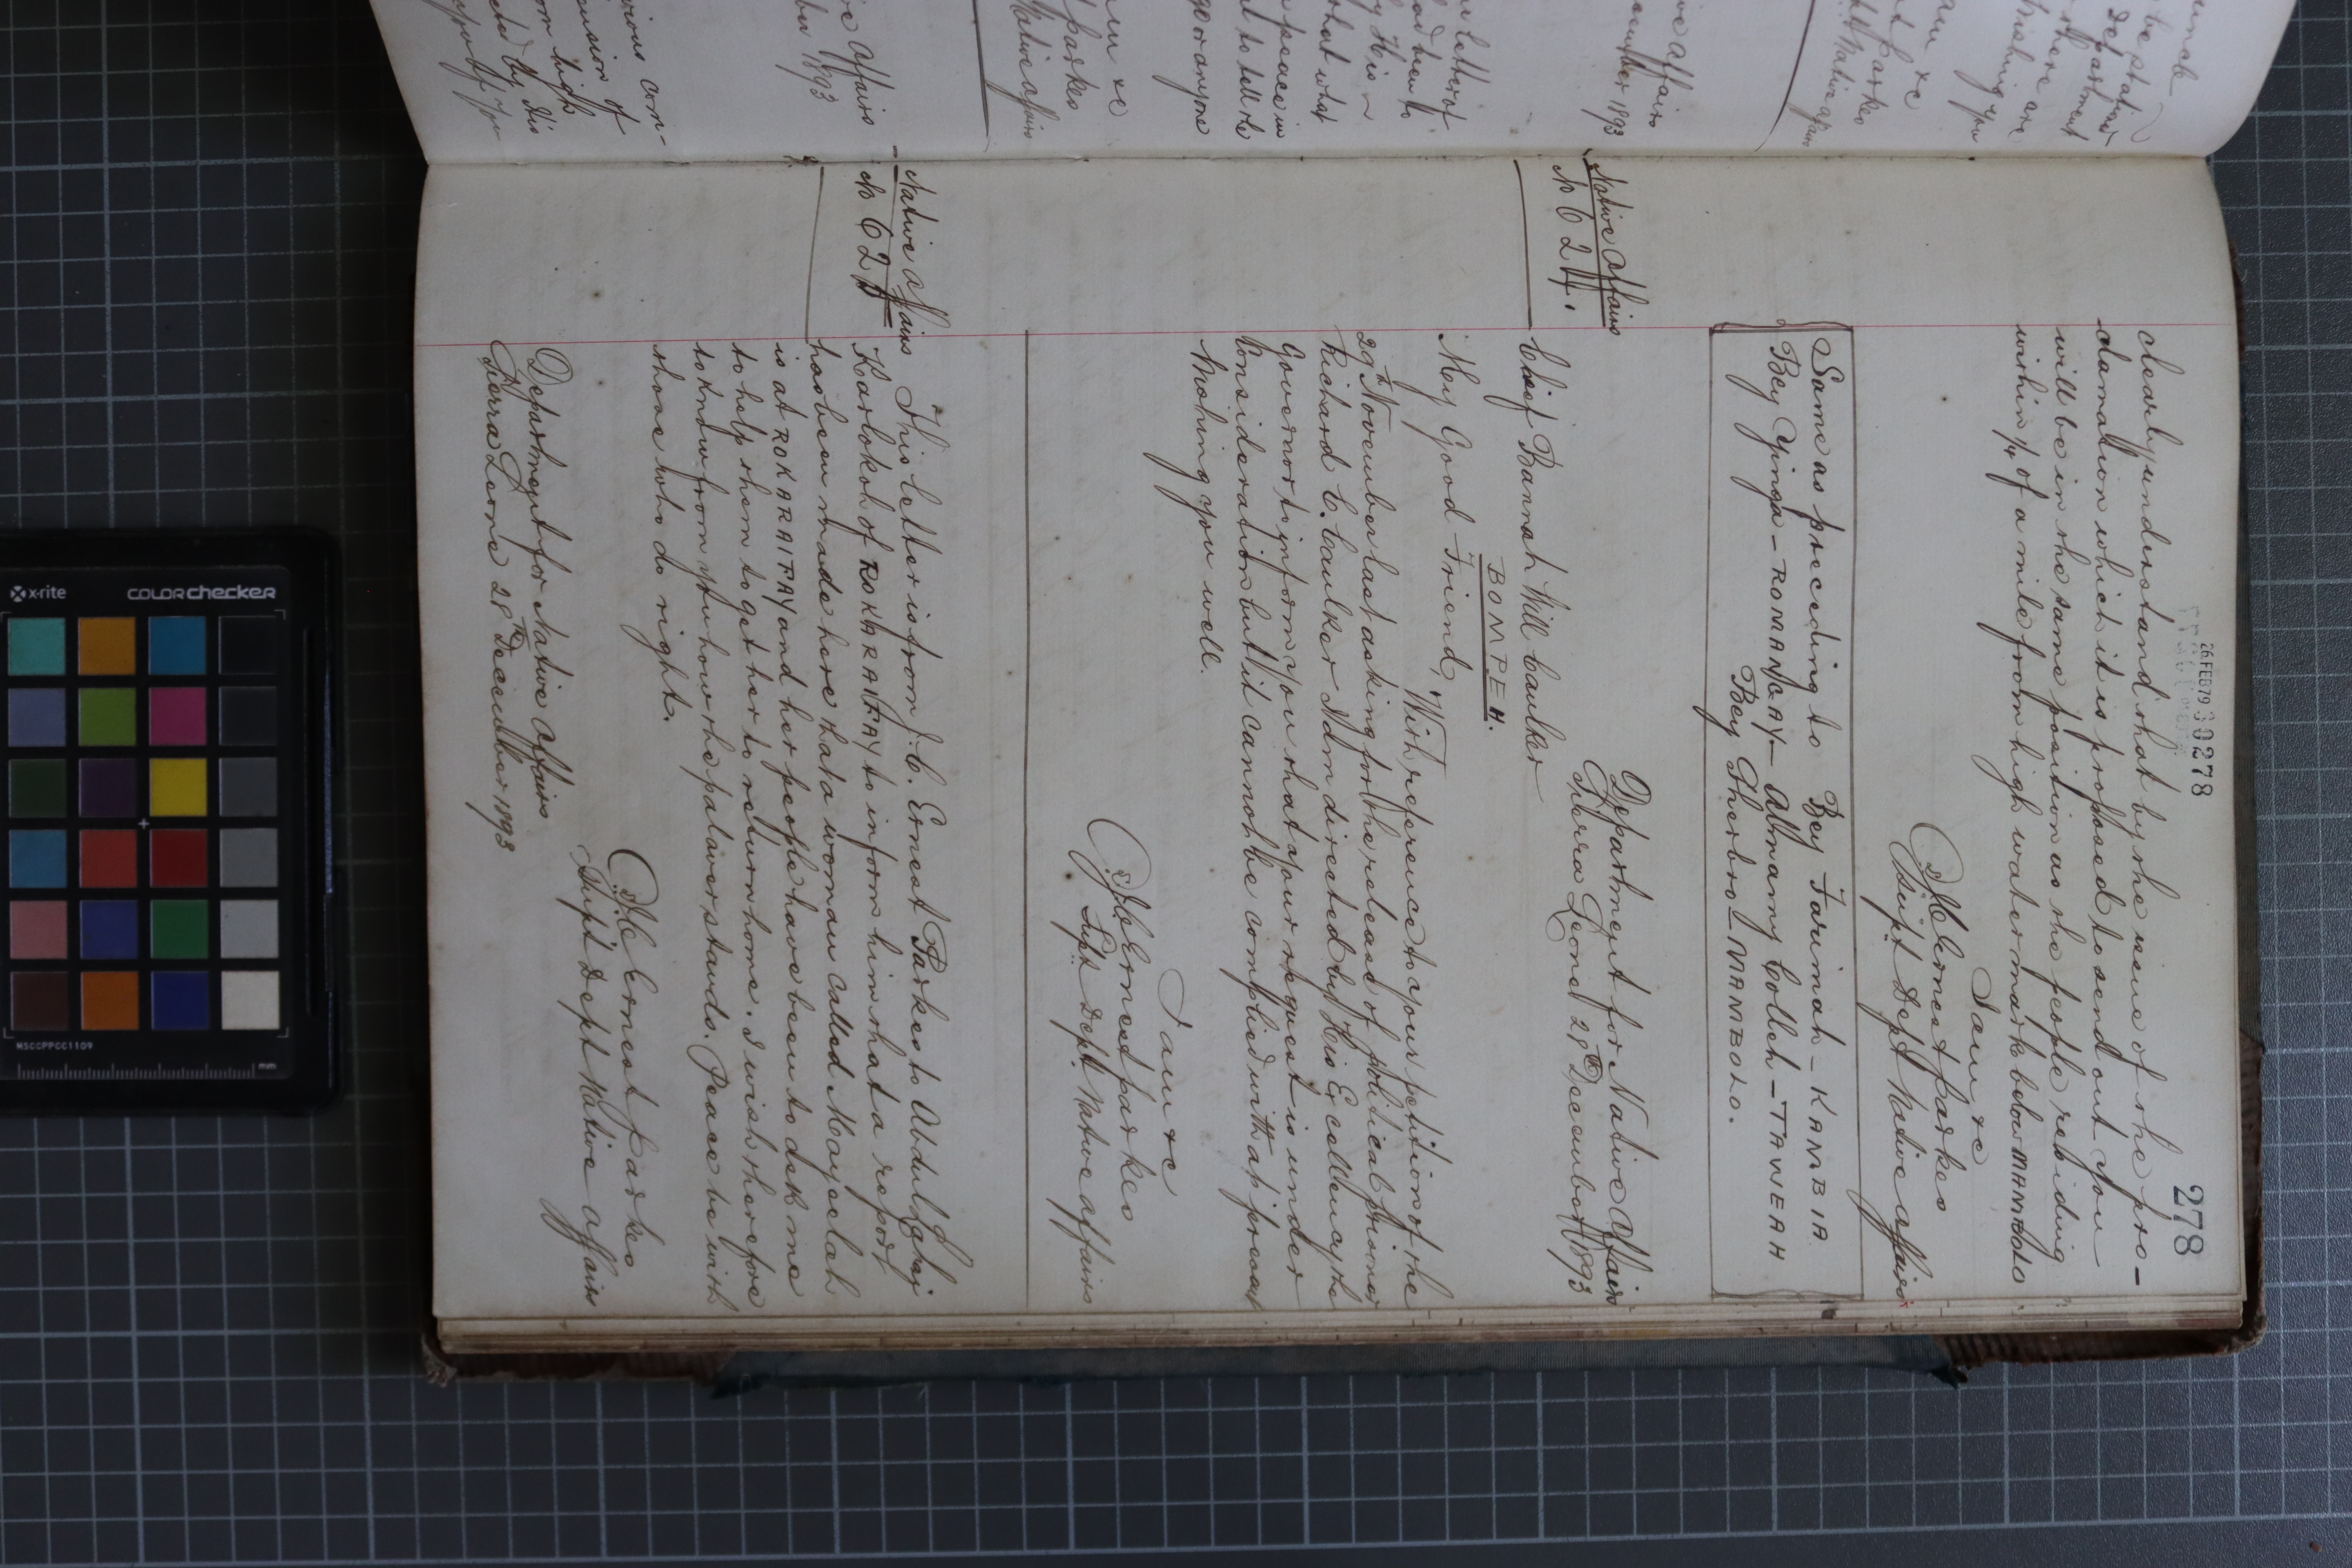 278
26 FEB 79 30278
clearly understand that by the issue of the pro-
clamation which it is proposed to send out you
will be in the same position as the people residing
within ¼ of a mile from high water mark below MAMBOLO
I am &c
J C Ernest Parkes
Supt Dept Native Affairs
Same as preceding to Bey Farimah - KAMBIA
Bey Yinga - ROMANGAY - Almamy Colleh - TAWEAH
Bey Sherbro - MAMBOLO.
Native Affairs
No 624.
Department for Native Affairs
Sierra Leone 28th December 1893
Chief Bannah Will Caulker
BOMPEH.
My Good Friend,
With reference to your petition of the
29th November last asking for the release of political prisoner
Richard C. Caulker I am directed by His Excellency the
Governor to inform you that your request is under
consideration but it cannot be complied with at present
Wishing you well.
I am &c
J C Ernest Parkes
Supt Dept Native Affairs
Native Affairs
No 625
This letter is from J. C. Ernest Parkes to Abdul
Karlokoh of ROKARAIFAY to inform him that a report
has been made here that a woman called Mayelah
is at ROKARAIFAY and her people have been to ask me
to help them to get her to return home. I wish therefore
to know from you how the palaver stands. Peace be with
those who do right.
J C Ernest Parkes
Supt Dept Native Affairs
Department for Native Affairs
Sierra Leone 28th December 1893
x-rite
COLORchecker
MSCCPPCC1109
mm